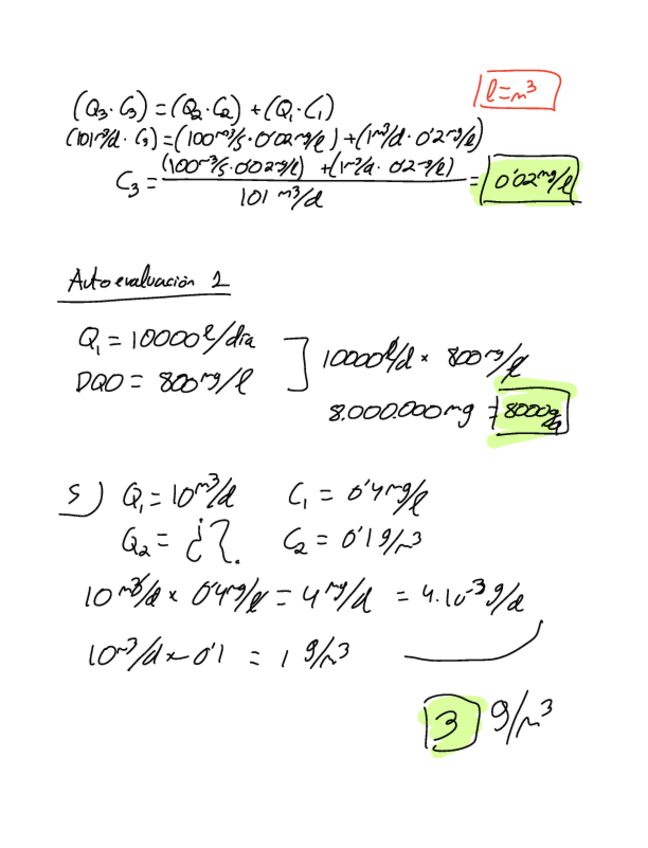 l=m³
(Q₃·C₃) = (Q₂·C₂) + (Q₁·C₁)
(101m³/d · C₃) = (100m³/s · 0'02mg/l) + (1m³/d · 0'2mg/l)
C₃ = (100m³/s · 0'02mg/l) + (1m³/d · 0'2mg/l) / 101 m³/d = 0'02mg/l
Autoevaluación 1
Q₁ = 10000 l/día
DQO = 800 mg/l
10000l/d × 800mg/l
8.000.000mg = 8000g/d
5) Q₁ = 10m³/d C₁ = 0'4mg/l
Q₂ = ¿?. C₂ = 0'1g/m³
10m³/d × 0'4mg/l = 4mg/d = 4·10⁻³g/d
10m³/d × 0'1 = 1 g/m³
3 g/m³